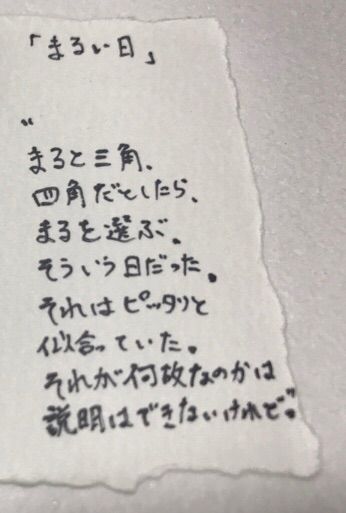 「まるい日」
〃
まると三角、
四角だとしたら、
まるを選ぶ。
そういう日だった。
それはピッタリと
似合っていた。
それが何故なのかは
説明はできないけれど〃。